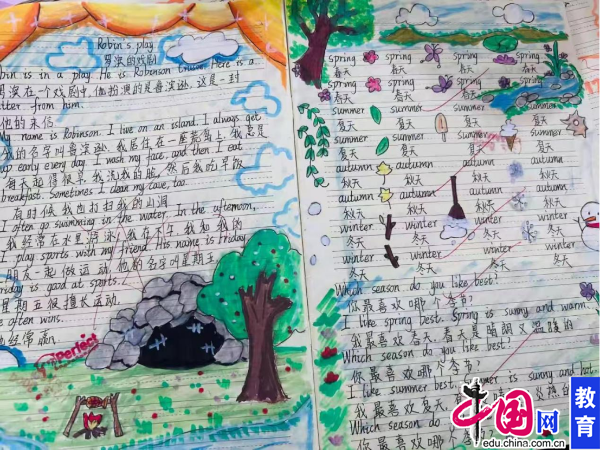 Robin's play
罗滨的戏剧
bin is in a play. He is Robinson Crusoe. Here is a
罗滨在一个戏剧中,他扮演的是鲁滨逊.这是一封
tter from him.
他的来信
My name is Robinson. I live on an island. I always get
我的名字叫鲁滨逊.我居住在一座荒岛上.我总是
up early every day. I wash my face, and then I eat
每天起得很早.我洗我的脸,然后我吃早饭
breakfast. Sometimes I clean my cave, too.
有时候我也打扫我的山洞
In the afternoon,
I often go swimming in the water.
我经常在水里游泳.在下午我和我的
I play sports with my friend. His name is Friday.
朋友一起做运动.他的名字叫星期五
riday is good at sports.
星期五很擅长运动.
e often wins.
他经常赢.
Perfect
spring spring spring spring
春天 春天 春天
spring spring spring spring
春天 春天 春天
summer summer summer
夏天 夏天 夏天
summer summer summer
夏天 夏天 夏天
autumn autumn autumn
秋天 秋天 秋天
autumn autumn autumn
秋天 秋天 秋天
winter winter winter
冬天 冬天 冬天
winter winter winter
冬天 冬天 冬天
Which season do you like best?
你最喜欢哪个季节?
I like spring best. Spring is sunny and warm.
我最喜欢春天.春天是晴朗又温暖的
Which season do you like best?
你最喜欢哪个季节?
I like summer best. is sunny and hot.
我最喜欢夏天. 炎热的
Which season do
你最喜欢哪个季节?
中国网
edu.china.com.cn
教育